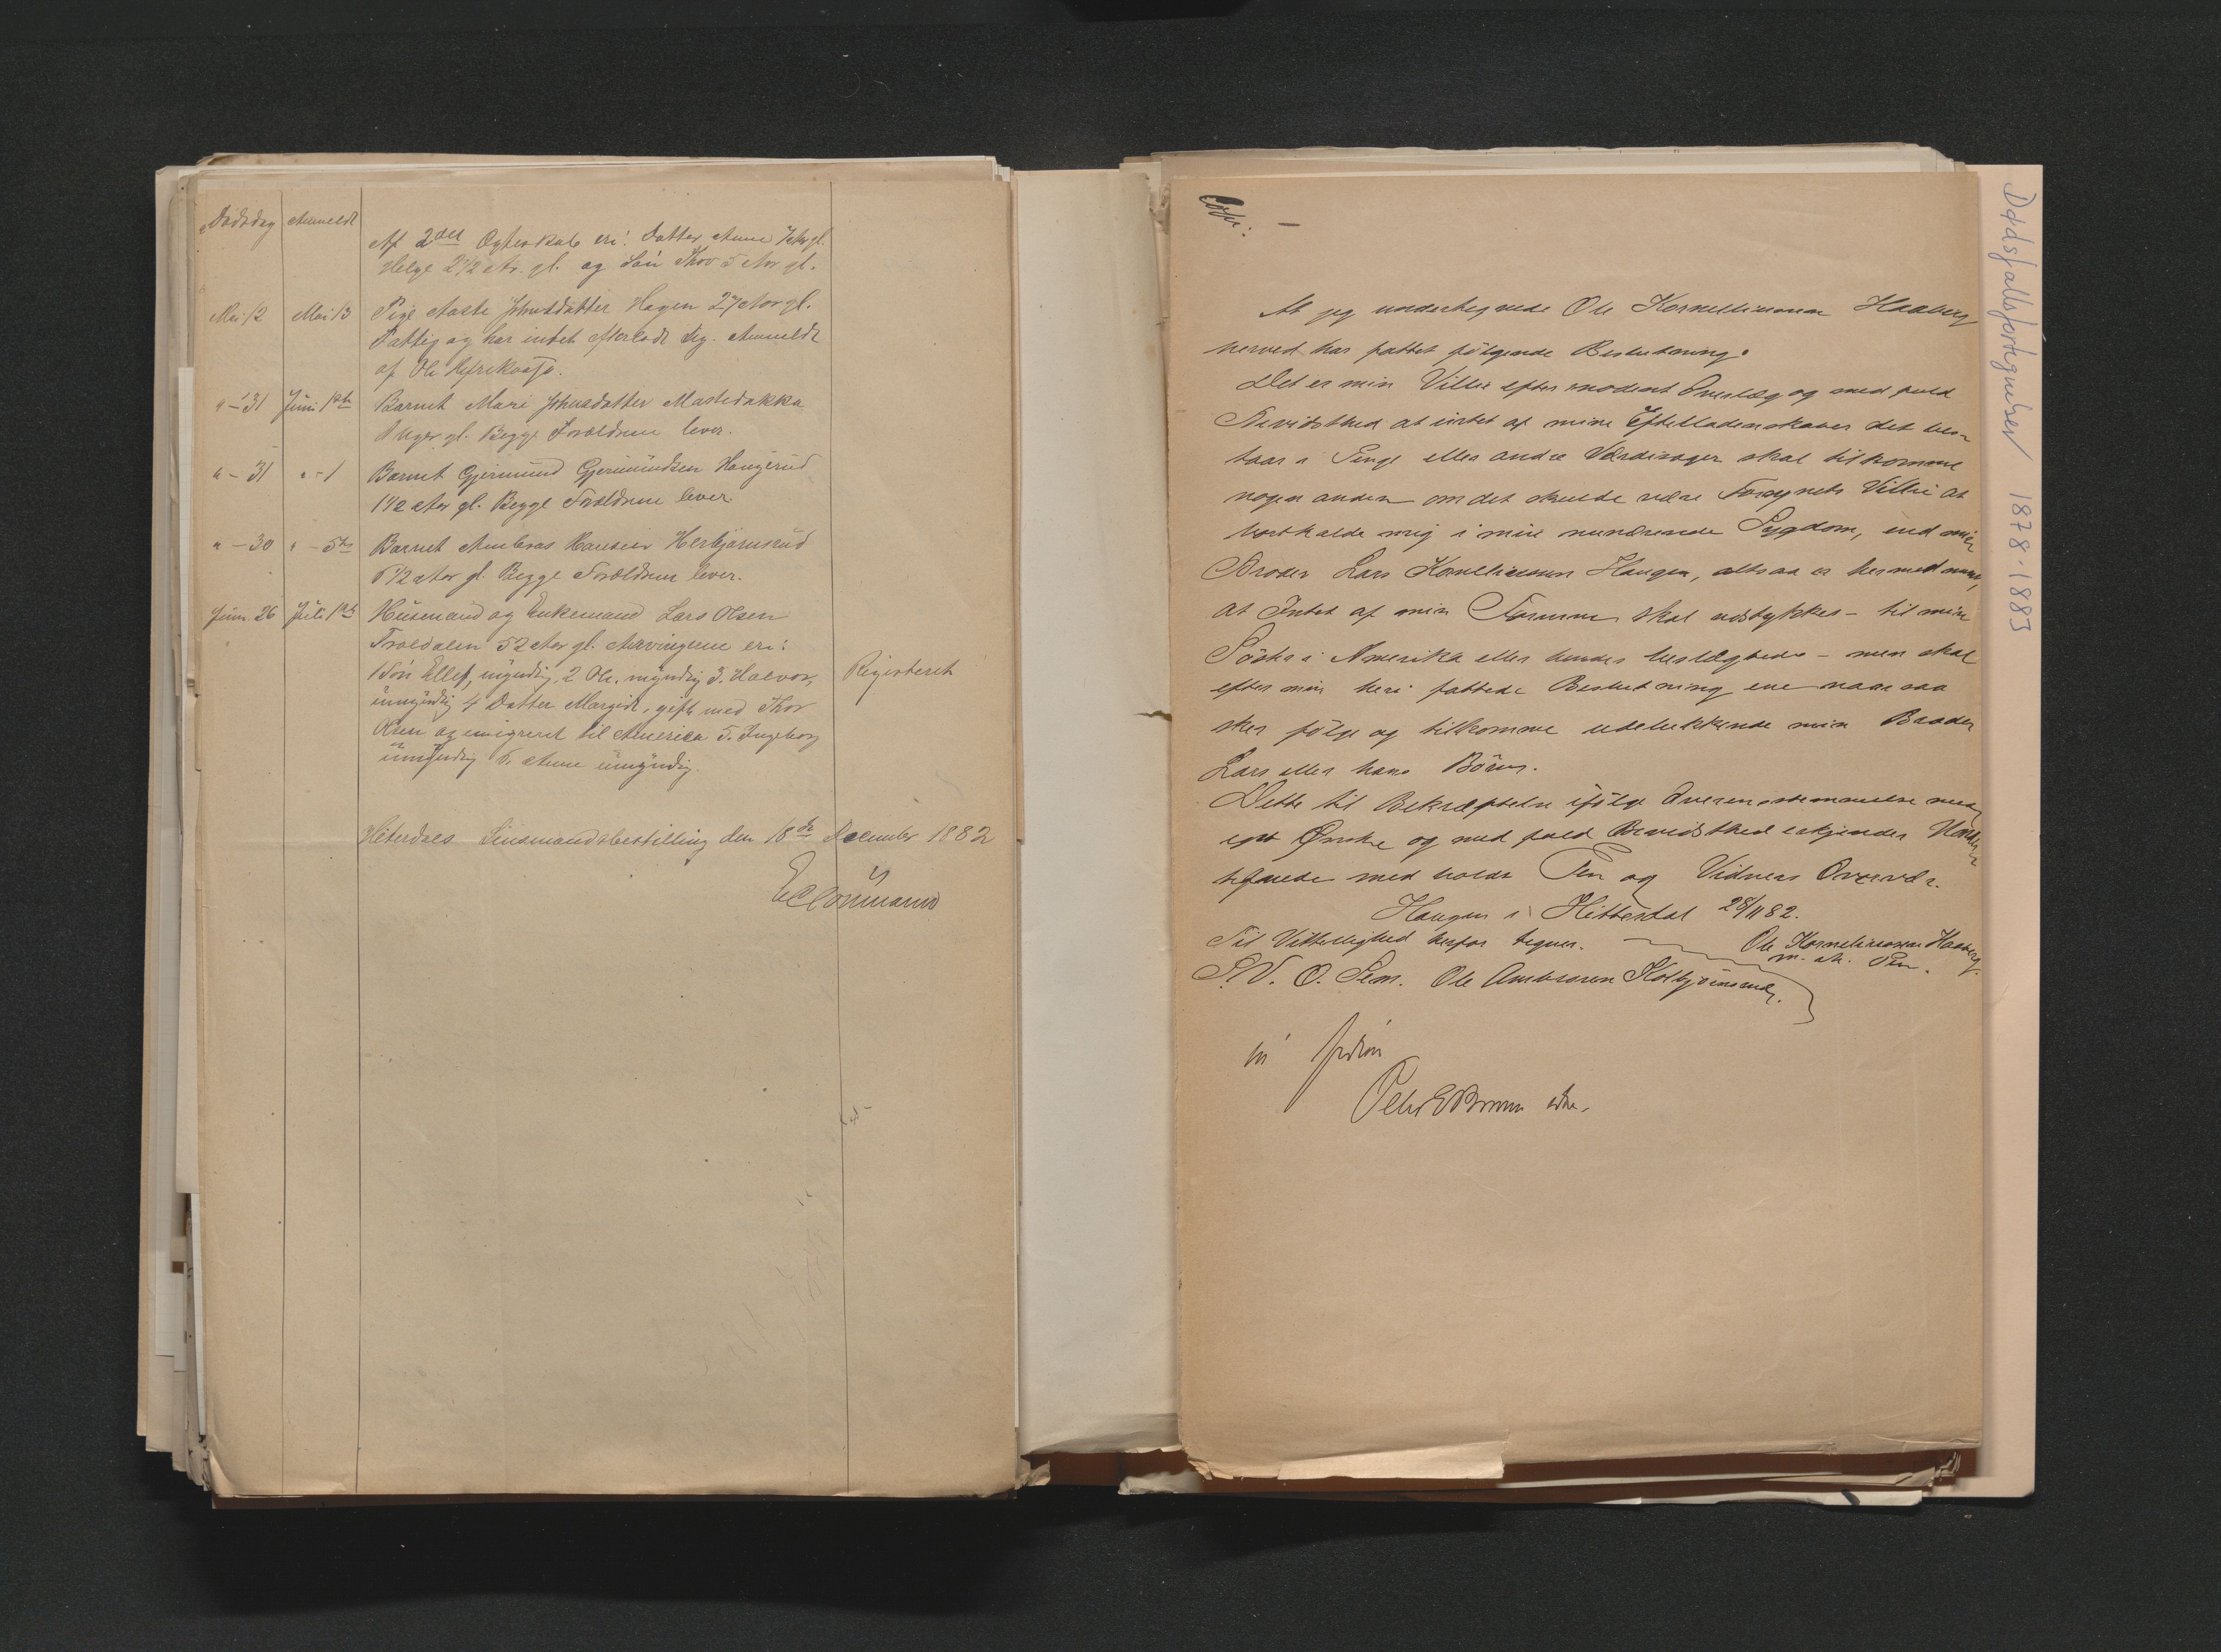 Dødsdag Anmeldt
Af 2det Ægteskab er: Datter Anne 7 Aar gl.
Helge 2 1/2 Ar. gl. og Søn Thov 5 Aar gl.
Mai 12 Mai 13 Pige Aaste Johnsdatter Hagen 27 Aar gl.
Fattig og har intet efterladt sig. Anmeldt
af Ole
"-31 Juni 1ste Barnet Mari Johnsdatter Mastedakka
Uger gl. Begge Forældrene lever.
"-31 "-1 Barnet Gjermund Gjermundsen Haugerud
1 1/2 Aar gl. Begge Forældrene lever.
"-30 "-5te Barnet Ambros Hansen Herbjørnsrud
1/2 Aar gl. Begge Forældrene lever.
Juni 26 Juli 1ste Husmand og Enkemand Lars Olsen
Troldalen 52 Aar gl. Arvingerne er:
1 Søn Ellef, myndig, 2 Ole, myndig 3. Halvor, Registeret
umyndig 4 Datter Margit, gift med Thor
Olsen og emigreret til America 5. Ingeborg
umyndig 6. Anne umyndig.
Hiterdals Lensmandsbestilling den 18de December 1882
Copi:
At jeg undertegnede Ole Korneliussen Haaberg
herved har fattet følgende Beslutning:
Det er min Villie efter modent Overlæg og med fuld
Bevidsthed at intet af mine Efterladenskaber det
være i Penge eller andre Værdisager skal tilkomme
nogen anden om det skulde være Forsynets Villie at
bortkalde mig i min nuværende Sygdom, end min
Broder Lars Korneliussen Haugen, altsaa er hermed
at Intet af min Formue skal udstykkes – til min
Søster i Amerika eller hendes beslægtede – men skal
efter min heri fattede Beslutning ene
følge og tilkomme udelukkende min Broder
Lars eller hans Børn.
Dette til Bekræftelse ifølge Overensstemmelse med
eget Ønske og med fuld Bevidsthed erkjender
tegnede med holdt Pen og Vidners Overvær.
Haugen i Hitterdal 28/11 82.
Til Vitterlighed herfor tegner. Ole Korneliussen Haaberg
m. ih. Pen.
O. Sem. Ole Ambrosen Kolbjørnsrud.